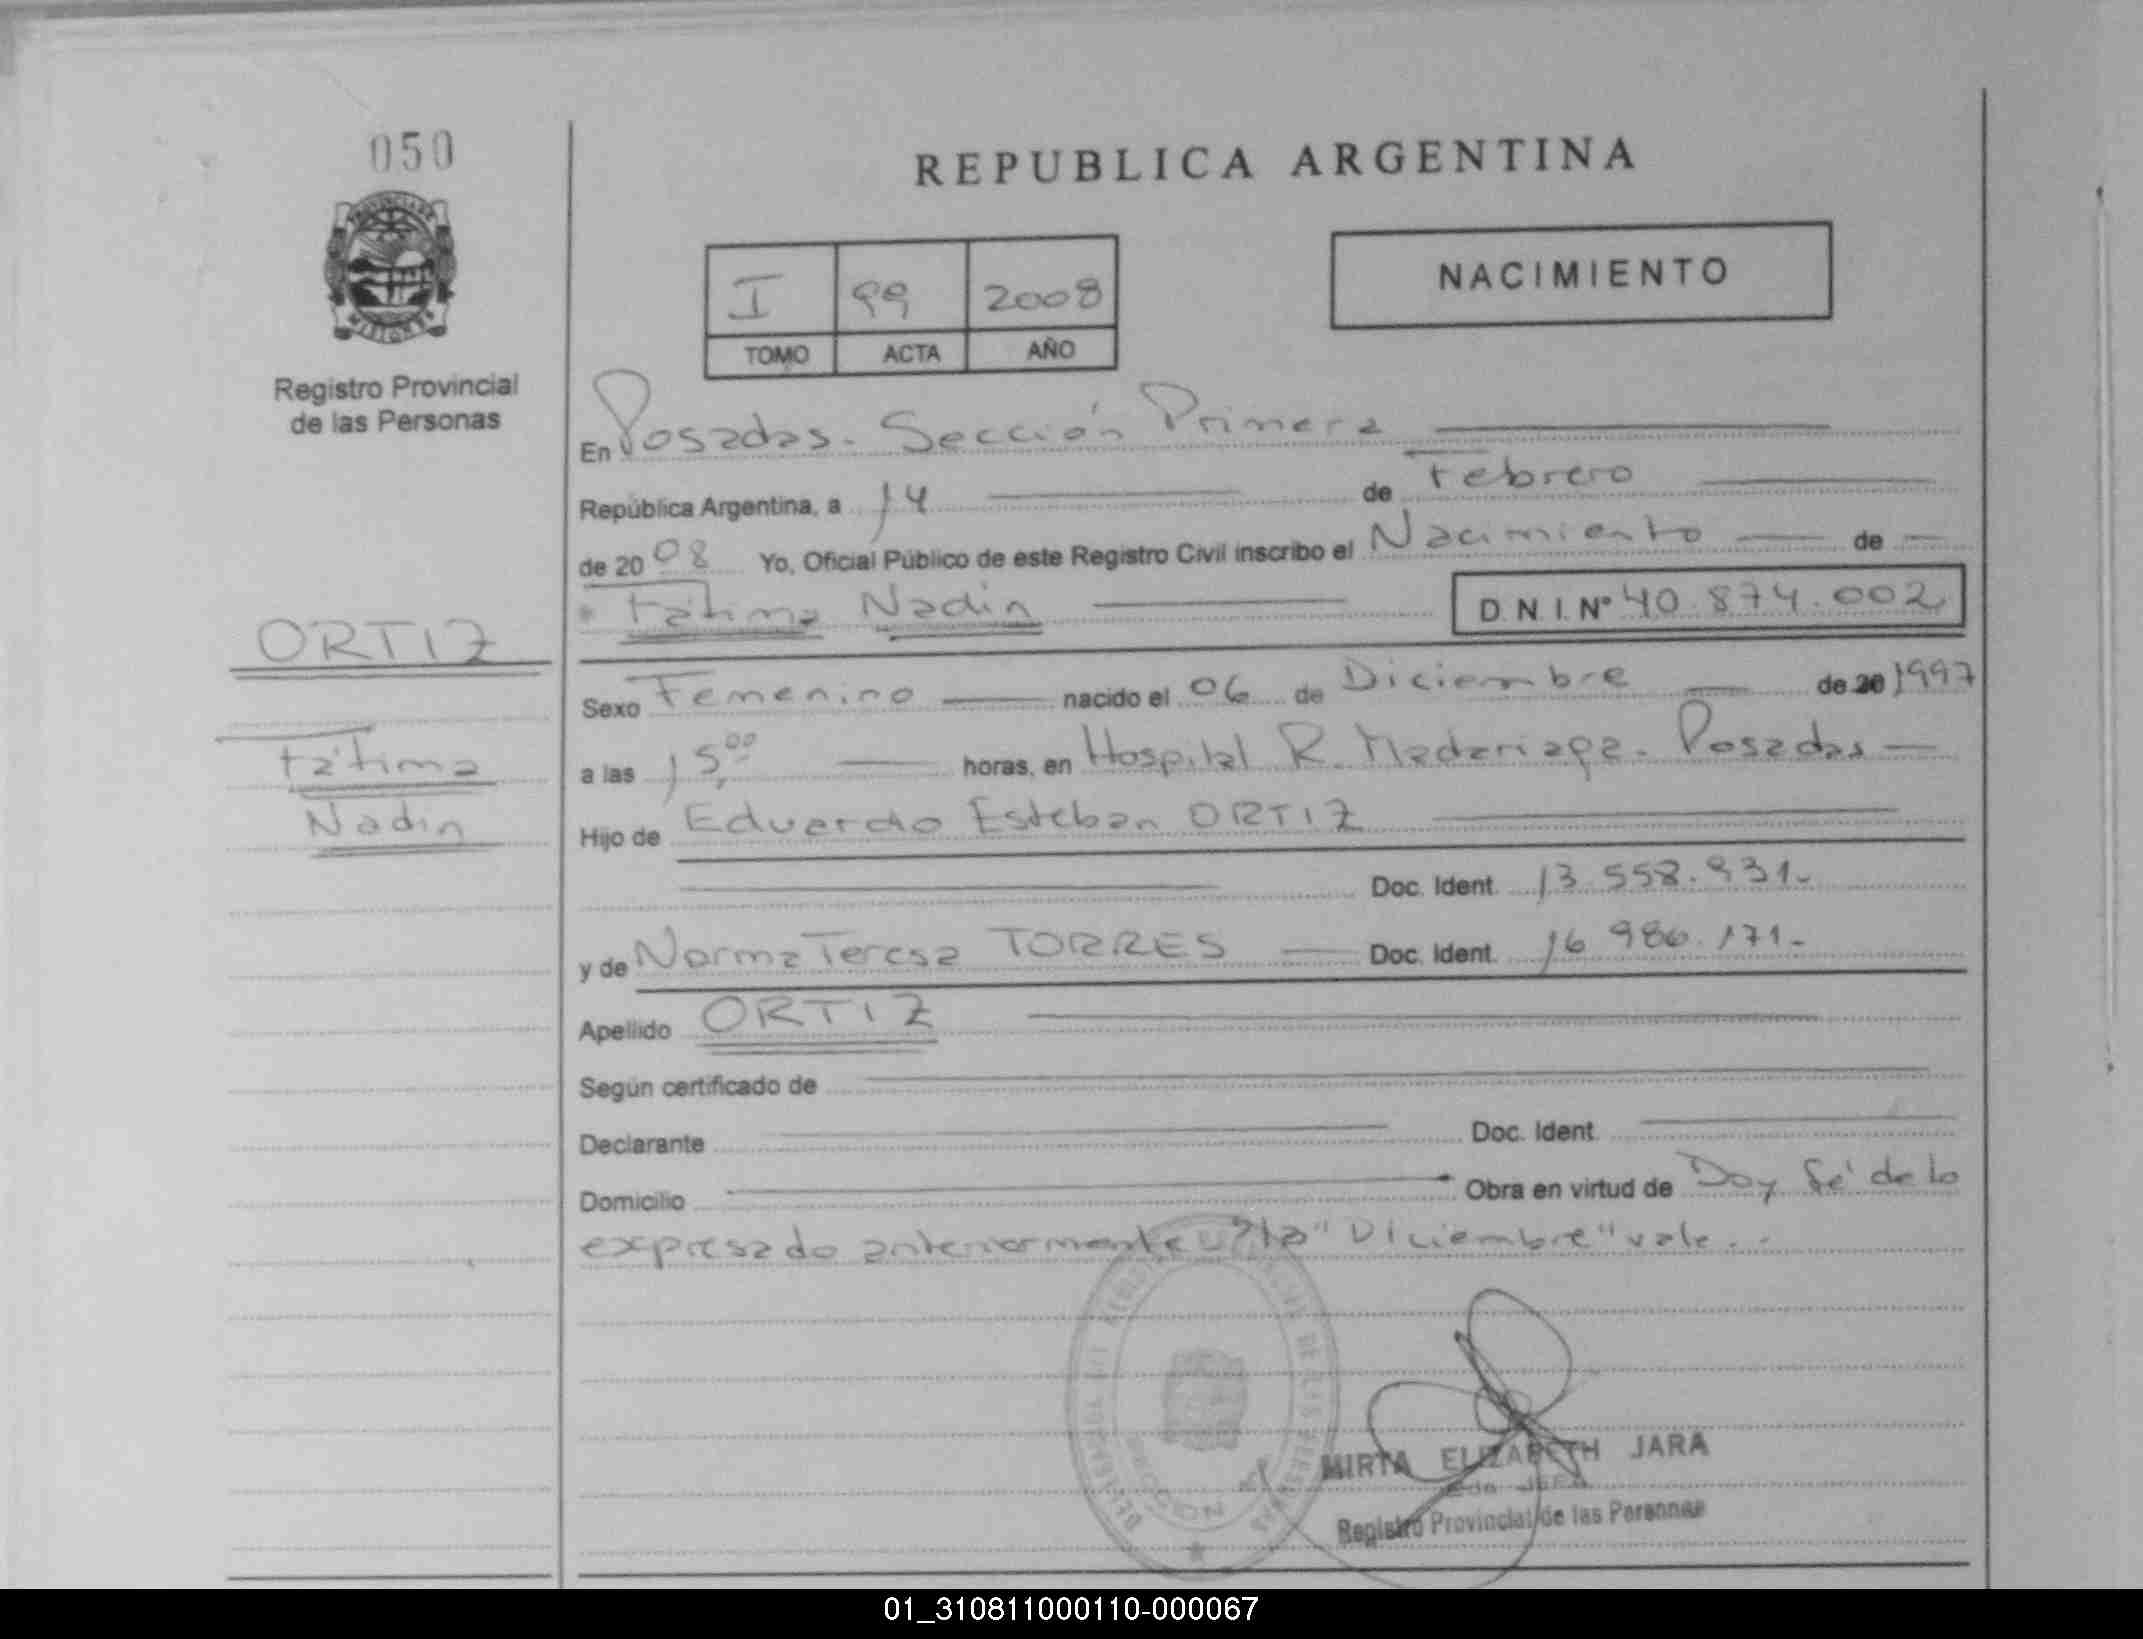 050
REPUBLICA ARGENTINA
NACIMIENTO
I 99 2008
TOMO ACTA AÑO
Registro Provincial
de las Personas
En Posadas. Sección Primera
República Argentina, a 14 de Febrero
de 2008 Yo, Oficial Público de este Registro Civil inscribo el Nacimiento de
Fátima Nadin D.N.I. Nº 40.874.002
ORTIZ
Fátima
Nadin
Sexo Femenino nacido el 06 de Diciembre de 20 1997
a las 15,00 horas, en Hospital R. Madariaga. Posadas
Hijo de Eduardo Esteban ORTIZ
Doc. Ident. 13.558.931.
y de Norma Teresa TORRES Doc. Ident. 16.986.171.
Apellido ORTIZ
Según certificado de
Declarante Doc. Ident.
Domicilio Obra en virtud de Doy fé de lo
expresado anteriormente "Diciembre" vale.
MIRTA ELIZABETH JARA
Registro Provincial de las Personas
01_310811000110-000067